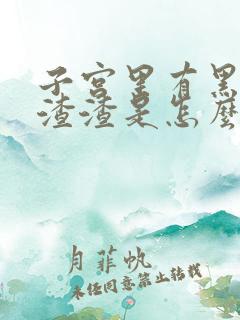 子宫里有黑
渣渣是怎麽
月菲帆
未经同意禁止转载